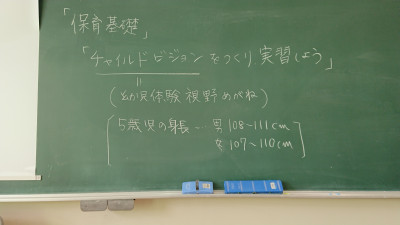 「保育基礎」
「チャイルドビジョンをつくり、実習しよう」
=
(幼児体験視野めがね)
5歳児の身長…男108~111cm
女107~110cm